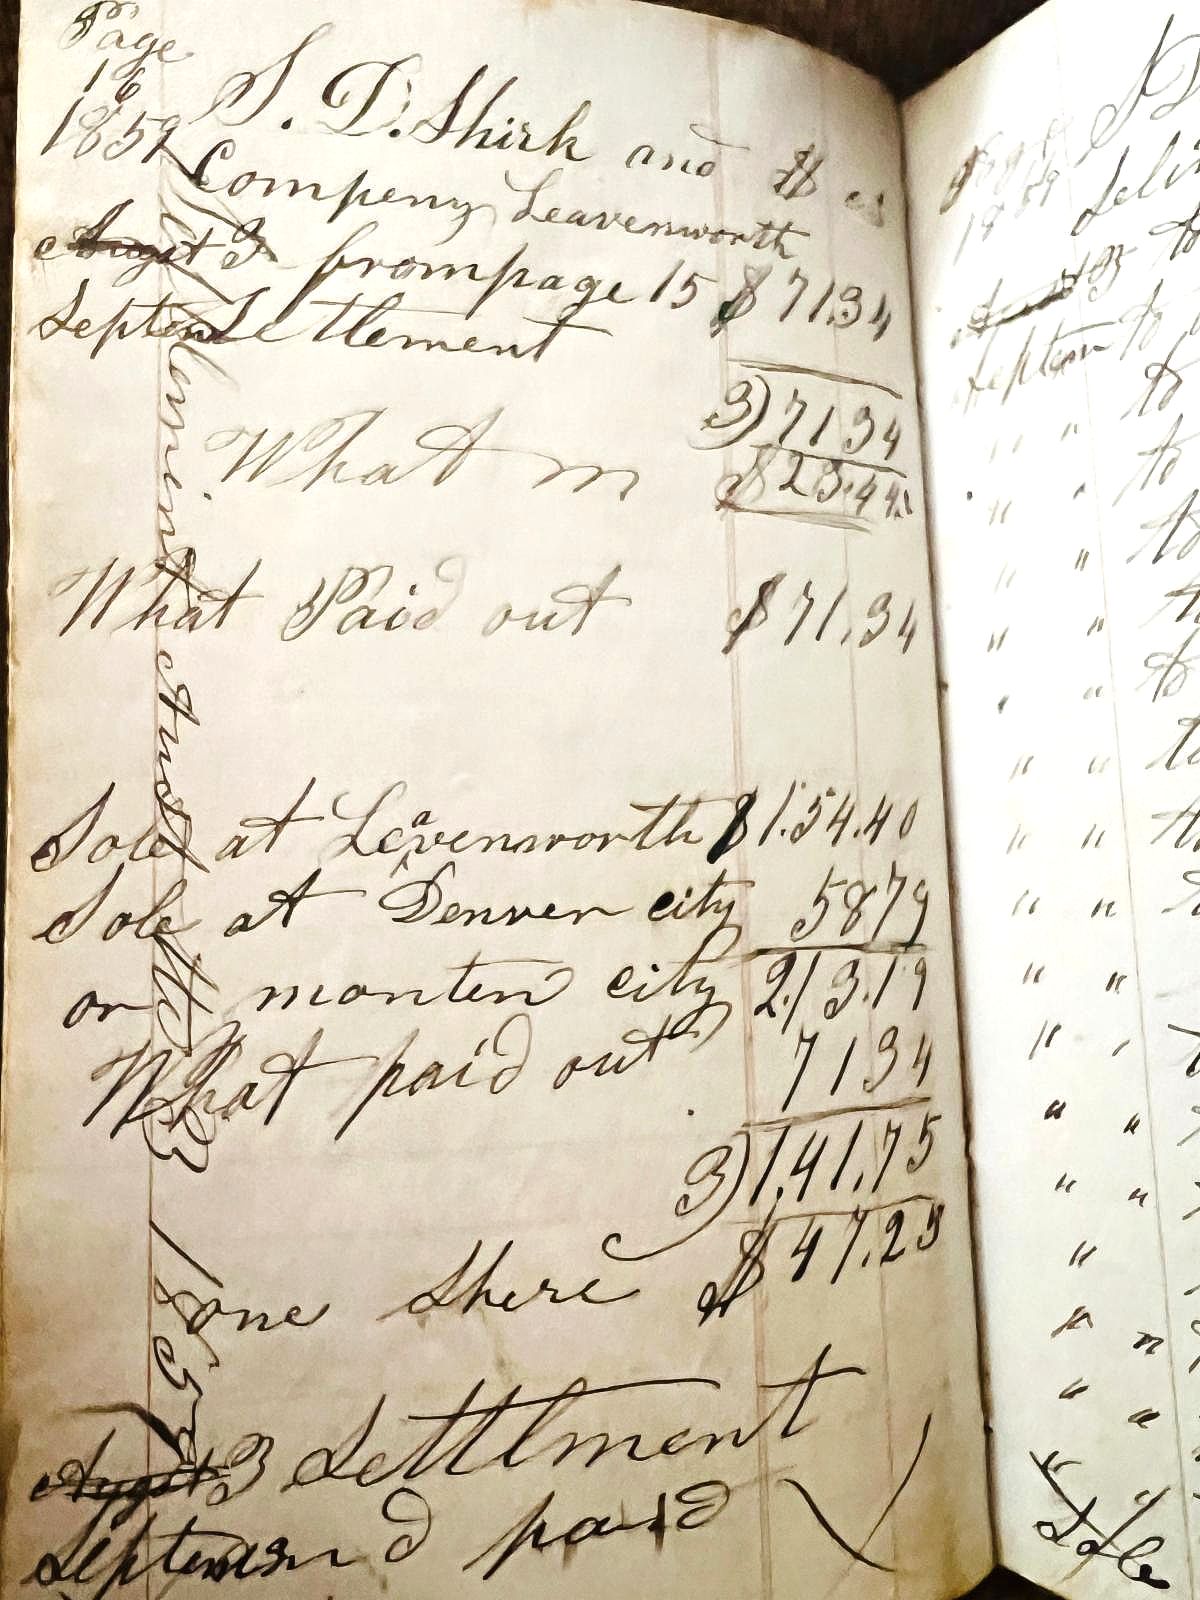 Page
16
1859 S. D. Shirk and $ cs
Compeny Leavenworth
August 3 from page 15 $ 71.34
Septem Settlement
3) 7134
What m $ 23.44
What Paid out $ 71.34
Sole at Leavenworth $ 1.54.40
Sole at Denver city 5879
or monten city 2.13.19
What paid out 7134
3) 1,41.75
one shere $ 47.23
August 3 Settlment
Septem d paid
1859
Septem to
to
to
to
to
to
Sole